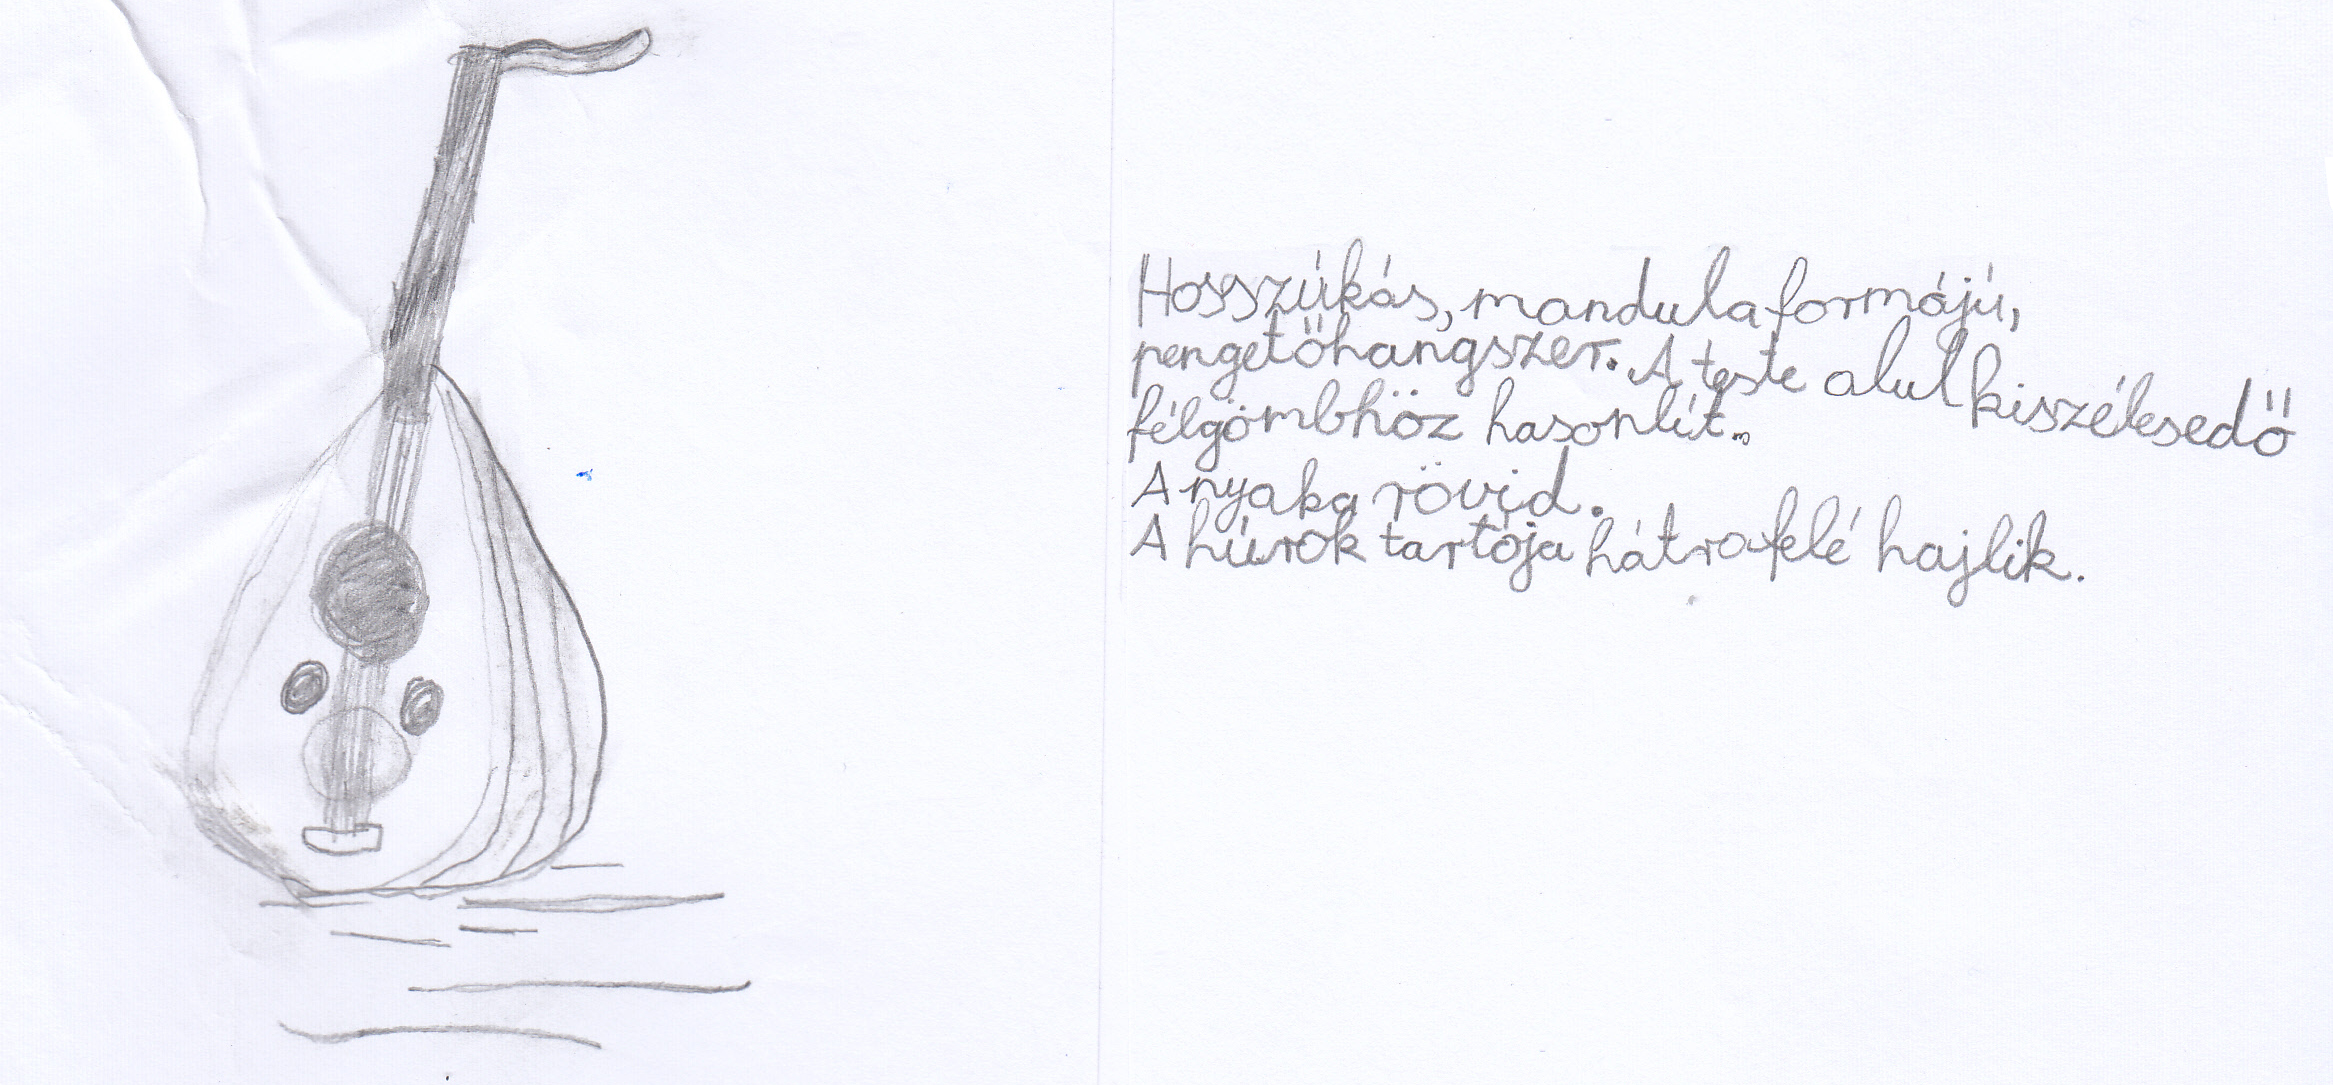 Hosszúkás, mandulaformájú,
pengetőhangszer. A teste alul kiszélesedő
félgömbhöz hasonlít.
A nyaka rövid.
A húrok tartója hátrafelé hajlik.